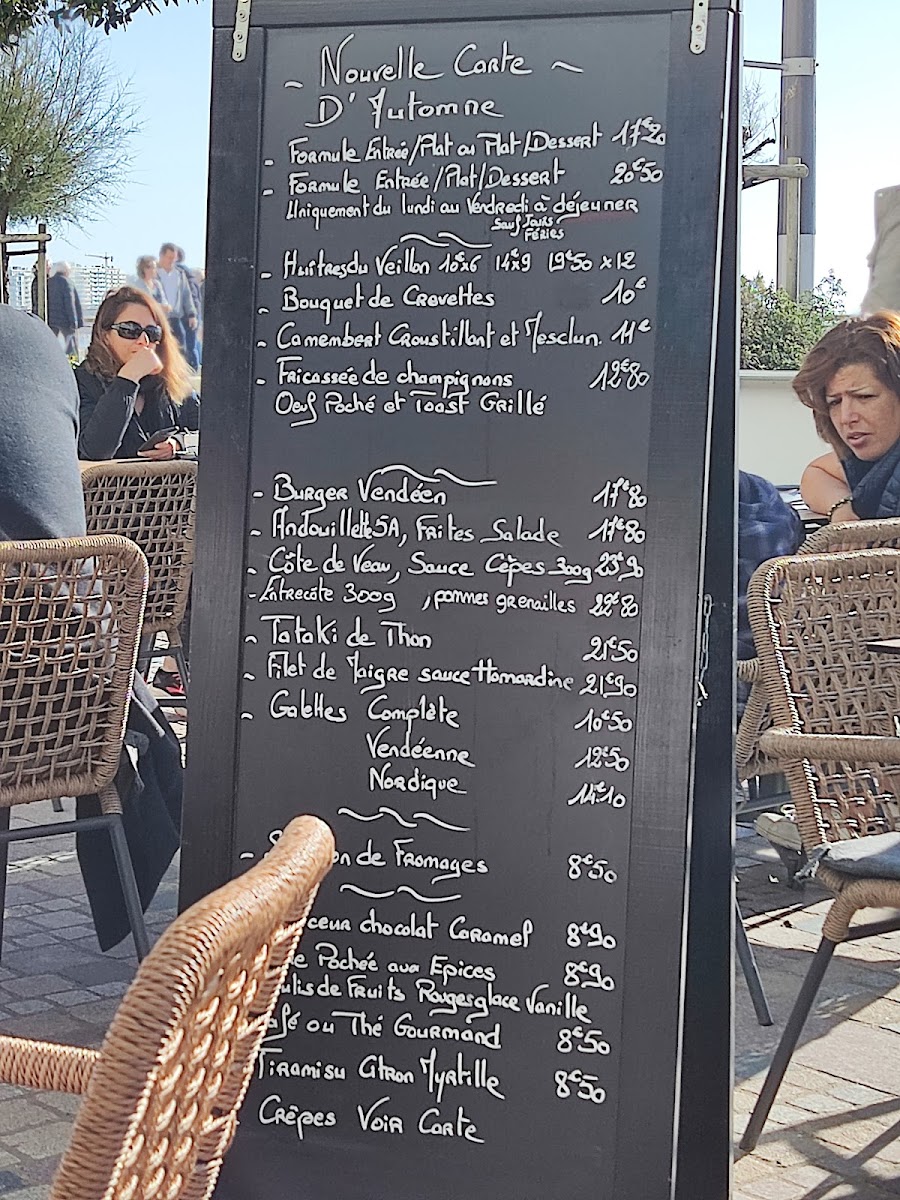 ~ Nouvelle Carte ~
D'Automne
- Formule Entrée/Plat ou Plat/Dessert 17€20
- Formule Entrée/Plat/Dessert 20€50
Uniquement du lundi au Vendredi à déjeuner
Sauf Jours
Féries
- Huîtres du Veillon 10€x6 14€x9 19€50 x12
- Bouquet de Crevettes 10€
- Camembert Croustillant et Mesclun 11€
- Fricassée de champignons 12€80
Oeuf Poché et Toast Grillé
- Burger Vendéen 17€80
- Andouillette 5A, Frites Salade 17€80
- Côte de Veau, Sauce Cèpes 300g 23€90
- Entrecôte 300g , pommes grenailles 22€80
- Tataki de Thon 21€50
- Filet de Maigre sauce Homardine 21€90
- Galettes Complète 10€50
Vendéenne 12€50
Nordique 14€10
- de Fromages 8€50
chocolat Caramel 8€90
Pochée aux Epices 8€90
de Fruits Rouges glace Vanille
ou Thé Gourmand 8€50
Tiramisu Citron Myrtille 8€50
Crêpes Voir Carte